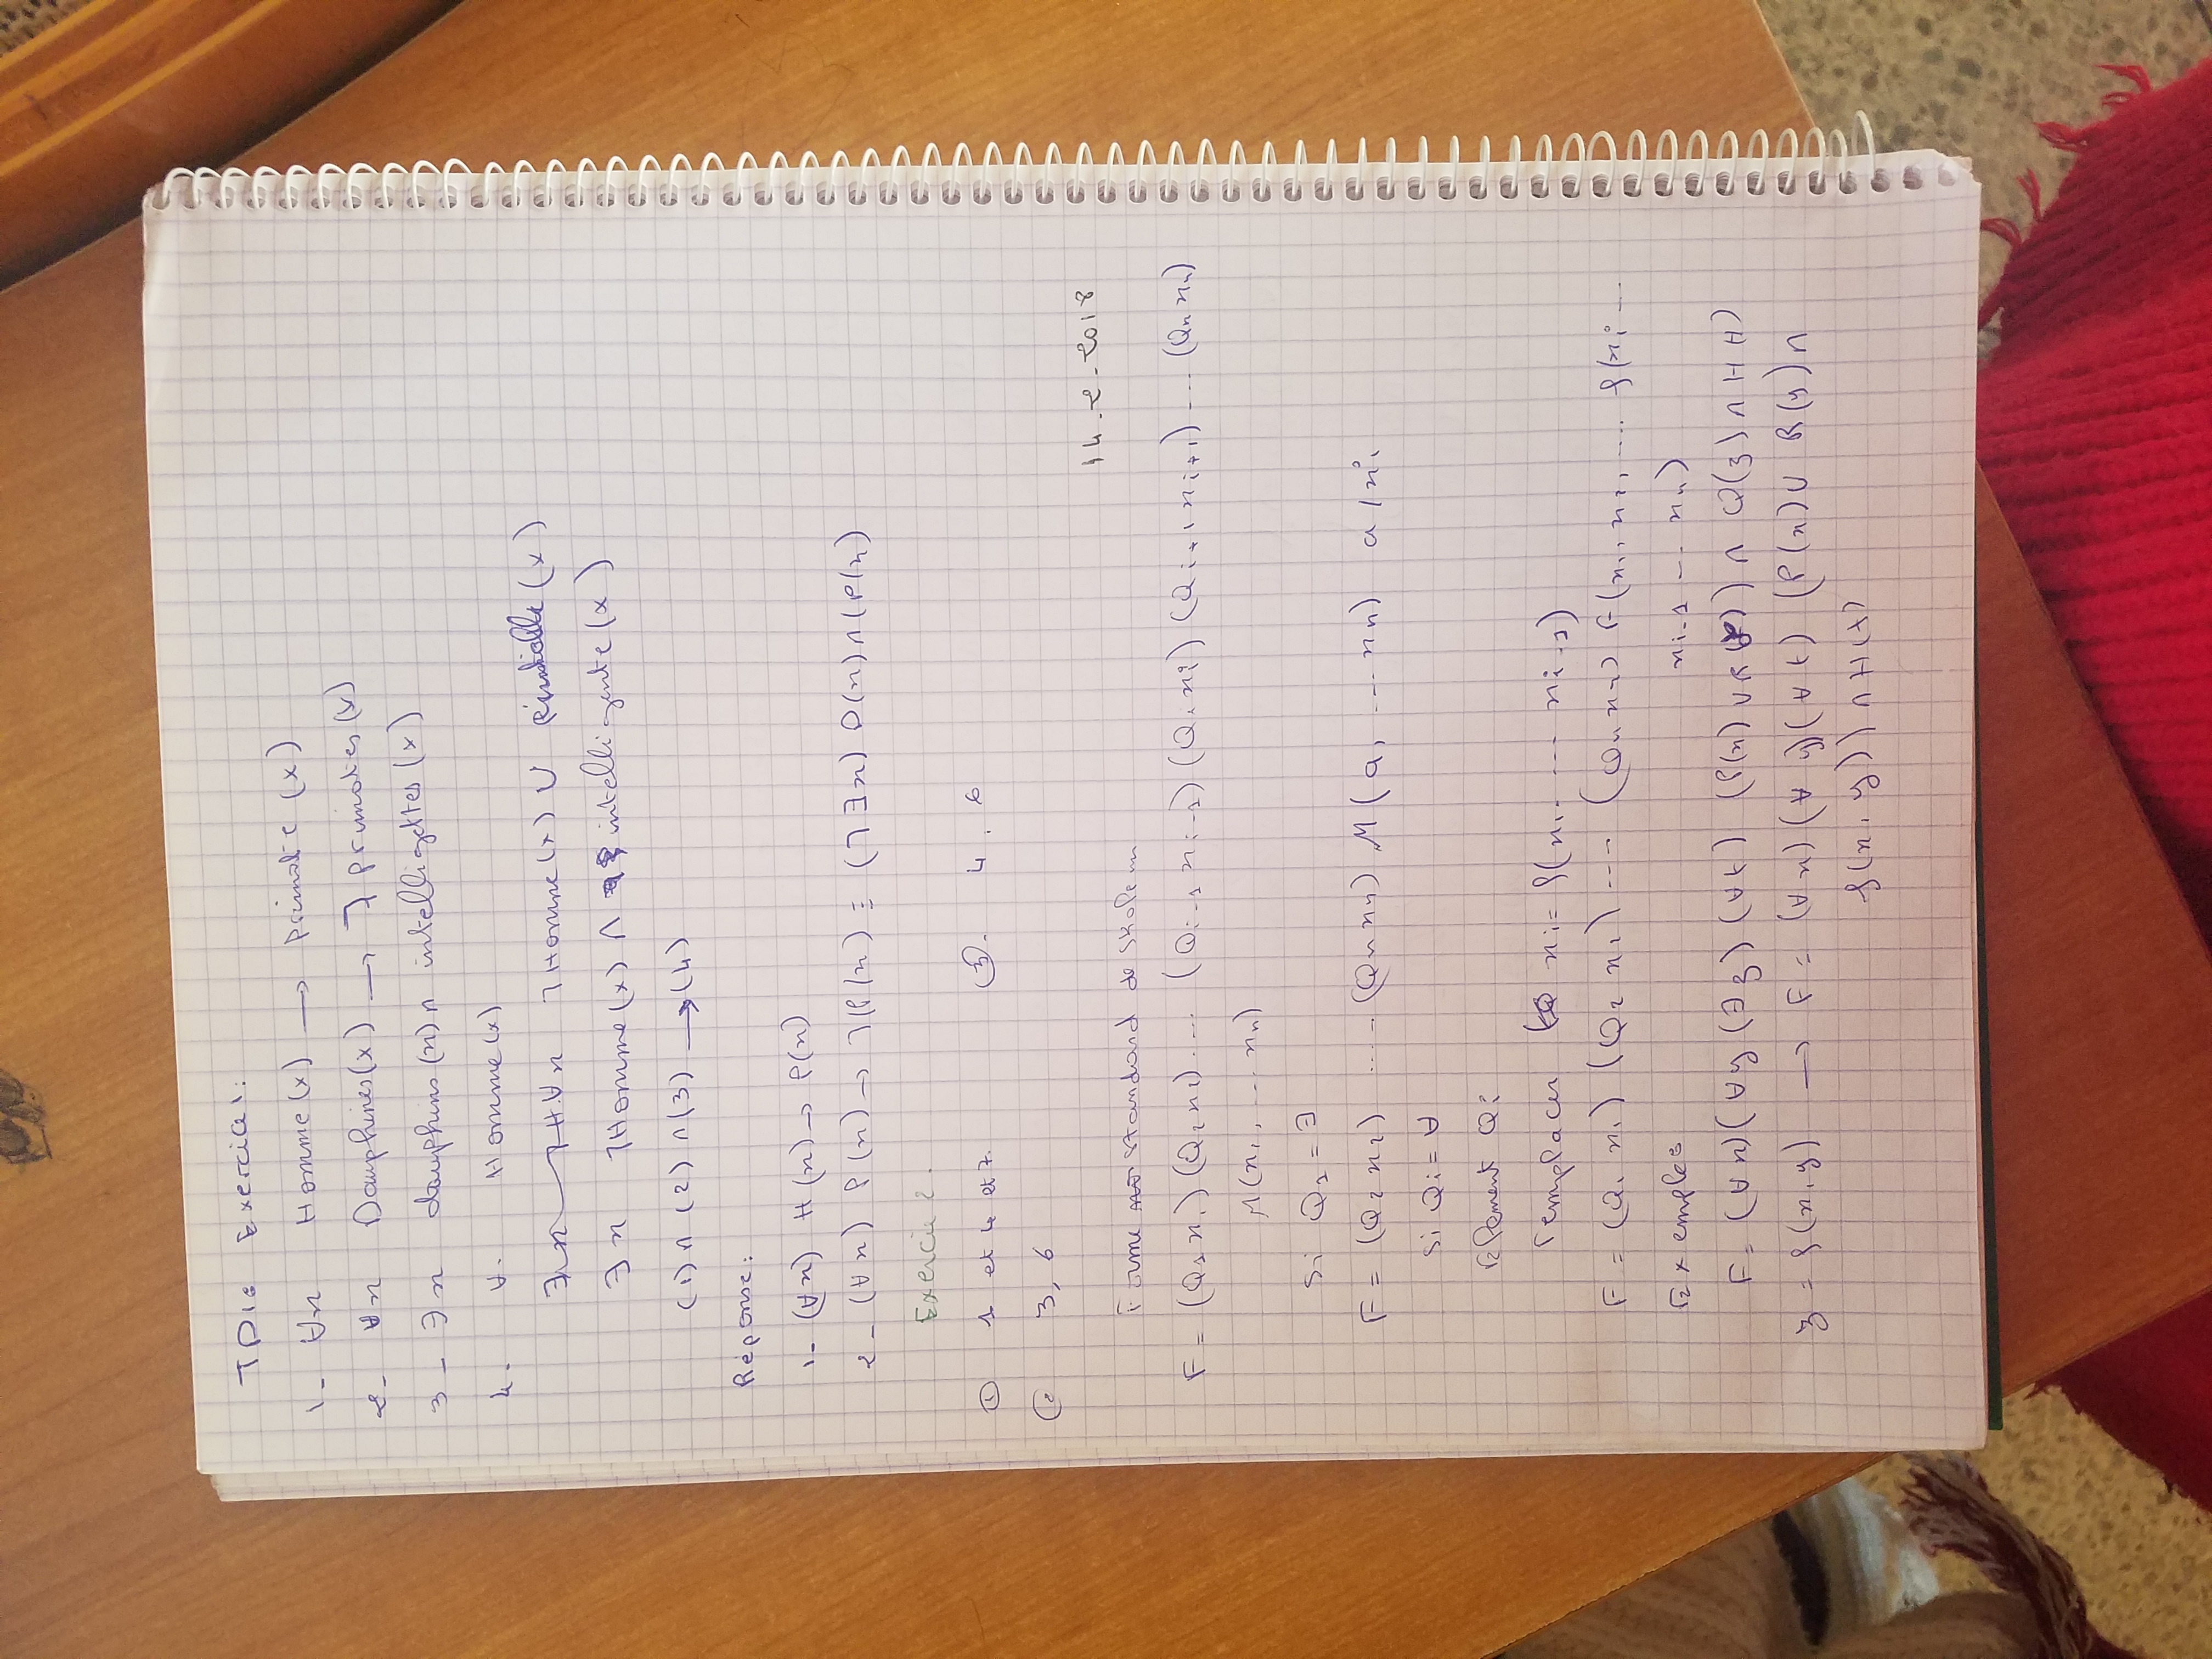 TD1: Exercice 1:
1- ∀x Homme(x) → primate (x)
2- ∀x Dauphines(x) → ⌉ primates(x)
3- ∃x dauphins(x) ∧ intelligettes(x)
4. ∀. Homme(x)
∃x ⌉H∀x ⌉Homme(x) ∪ (x)
∃x ⌉Homme(x) ∧ intelligente(x)
(1) ∧ (2) ∧ (3) → (4)
Réponse:
1- (∀x) H(x) → P(x)
2- (∀x) P(x) → ⌉(P(x) ≡ (⌉∃x) D(x) ∧ (P(x)
Exercice 2.
① 1 et 4 et 7. ③. 4. 6
② 3, 6
14-2-2018
Forme standard de Skolem
F = (Q1 x1) (Q2 x2) .... (Qi-1 xi-1) (Qi xi) (Qi+1 xi+1) .... (Qn xn)
M(x1, ... xn)
Si Q1 = ∃
F = (Q2 x2) ..... (Qn xn) M(a, ... xn) a/x1
Si Qi = ∀
Element Qi
remplacer xi = f(x1. .... xi-1)
F = (Q1 x1) (Q2 x2) .... (Qn xn) F(x1, x2, .... f(xi ...
xi-1 ... xn)
Exemple:
F = (∀x) (∀y) (∃z) (∀t) (P(x) ∪ R(y)) ∧ Q(z) ∧ H H)
z = f(x,y) → F = (∀x) (∀y) (∀t) (P(x) ∪ R(y) ∧
f(x,y)) ∧ H(t)